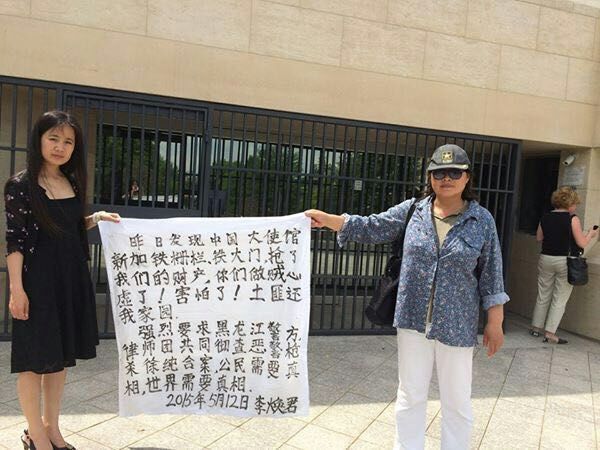 昨日发现中国大使馆
新加铁栅栏,铁大门,抢了
我们的财产,你们做贼心
虚了!害怕了!土匪还
我家园.
强烈要求黑龙江警方,
律师团共同彻查恶警枪
杀徐纯合案,公民需要真
相,世界需要真相.
2015年5月12日 李焕君